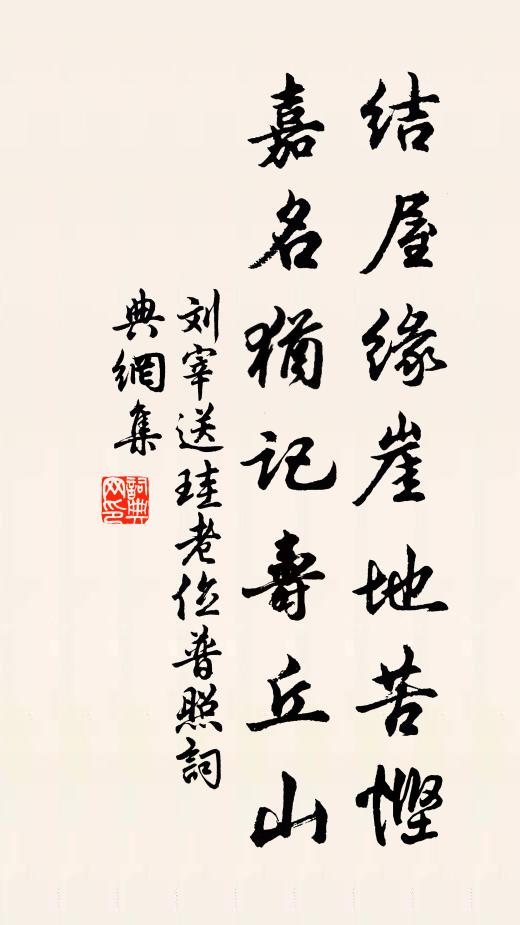 结屋缘崖地苦悭
嘉名犹记寿丘山
刘宰送珪老住普照詞
典網集
詞典网印